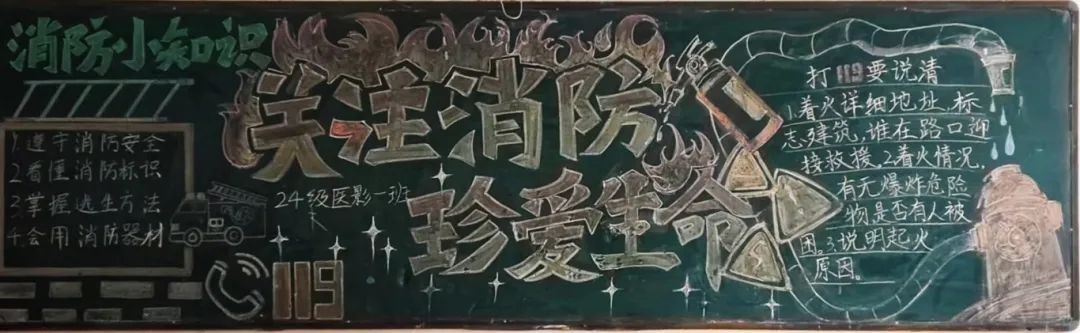 消防小知识
1.遵守消防安全
2.看懂消防标识
3.掌握逃生方法
4.会用消防器材
119
关注消防
珍爱生命
24级医影一班
打119要说清
1.着火详细地址、标
志建筑、谁在路口迎
接救援。2.着火情况,
有无爆炸危险
物是否有人被
困。3.说明起火
原因。